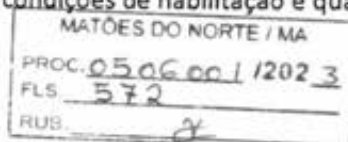 condições de habilitação e qua
MATÕES DO NORTE / MA
PROC. 0506001 / 2023
FLS. 572
RUB.